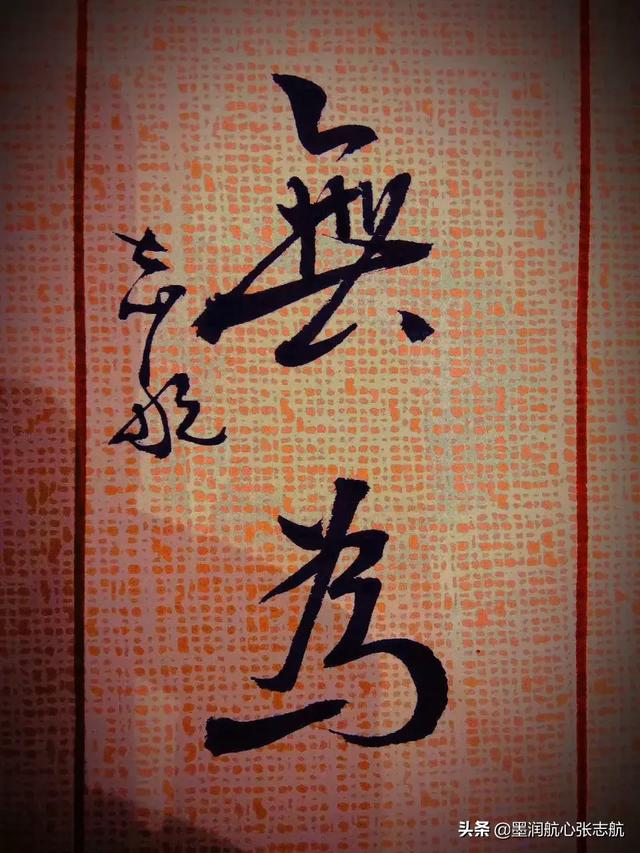 無為
志航
头条 @墨润航心张志航